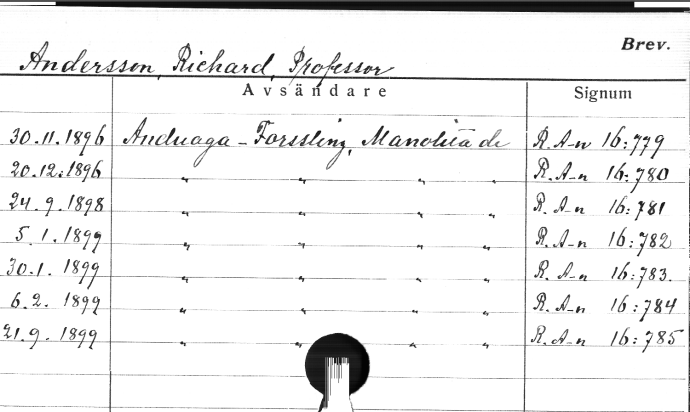 Brev.
Andersson, Richard, Professor
Avsändare Signum
30.11.1896 Anduaga-Forssling, Manolita de R. A-n 16:779
20.12.1896 " " " " R. A-n 16:780
24.9.1898 " " " " R. A-n 16:781
5.1.1899 " " " " R. A-n 16:782
30.1.1899 " " " " R. A-n 16:783.
6.2.1899 " " " " R. A-n 16:784
21.9.1899 " " " " R. A-n 16:785